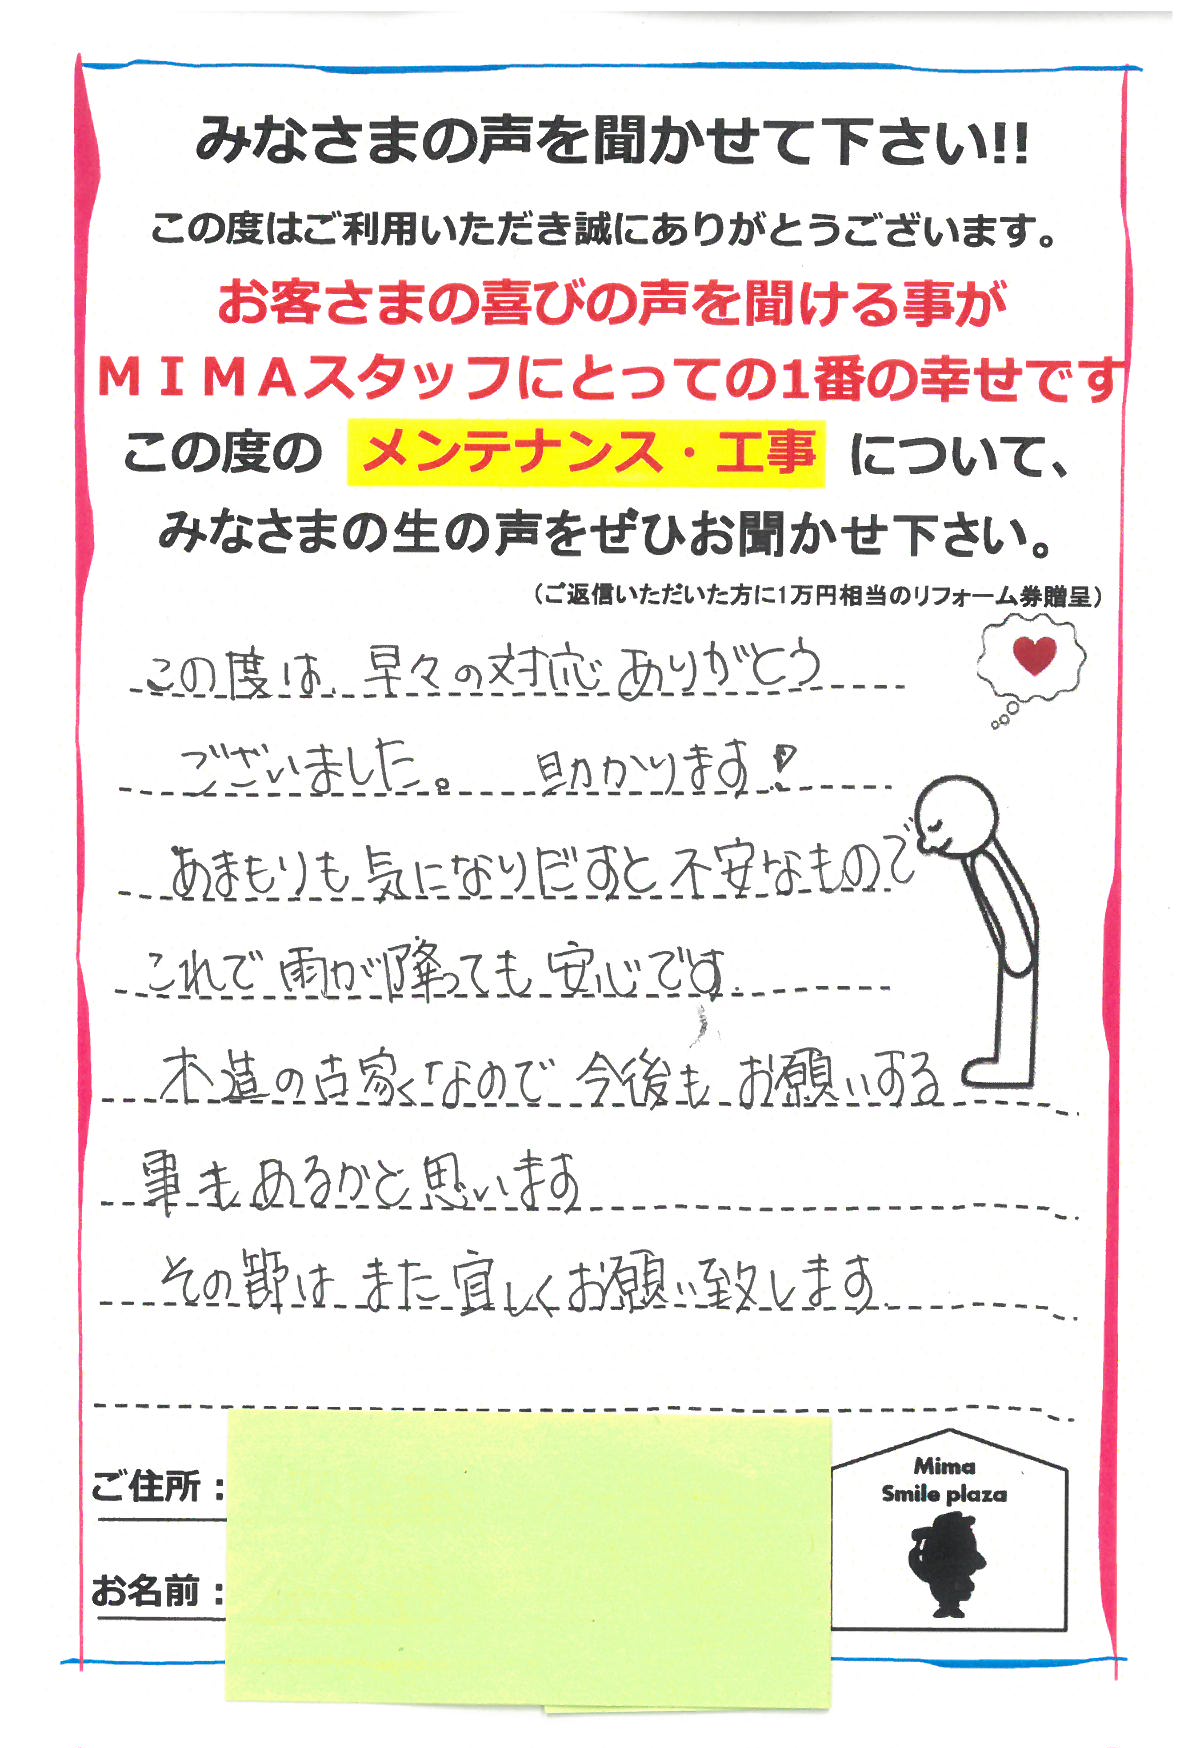 みなさまの声を聞かせて下さい!!
この度はご利用いただき誠にありがとうございます。
お客さまの喜びの声を聞ける事が
ＭＩＭＡスタッフにとっての1番の幸せです
この度の メンテナンス・工事 について、
みなさまの生の声をぜひお聞かせ下さい。
（ご返信いただいた方に1万円相当のリフォーム券贈呈）
この度は、早々の対応ありがとう
ございました。 助かります!
あまもりも気になりだすと不安なもので
これで雨が降っても安心です.
木造の古家くなので今後もお願いする
事もあるかと思います
その節はまた宜しくお願い致します.
ご住所：
お名前：
Mima
Smile plaza